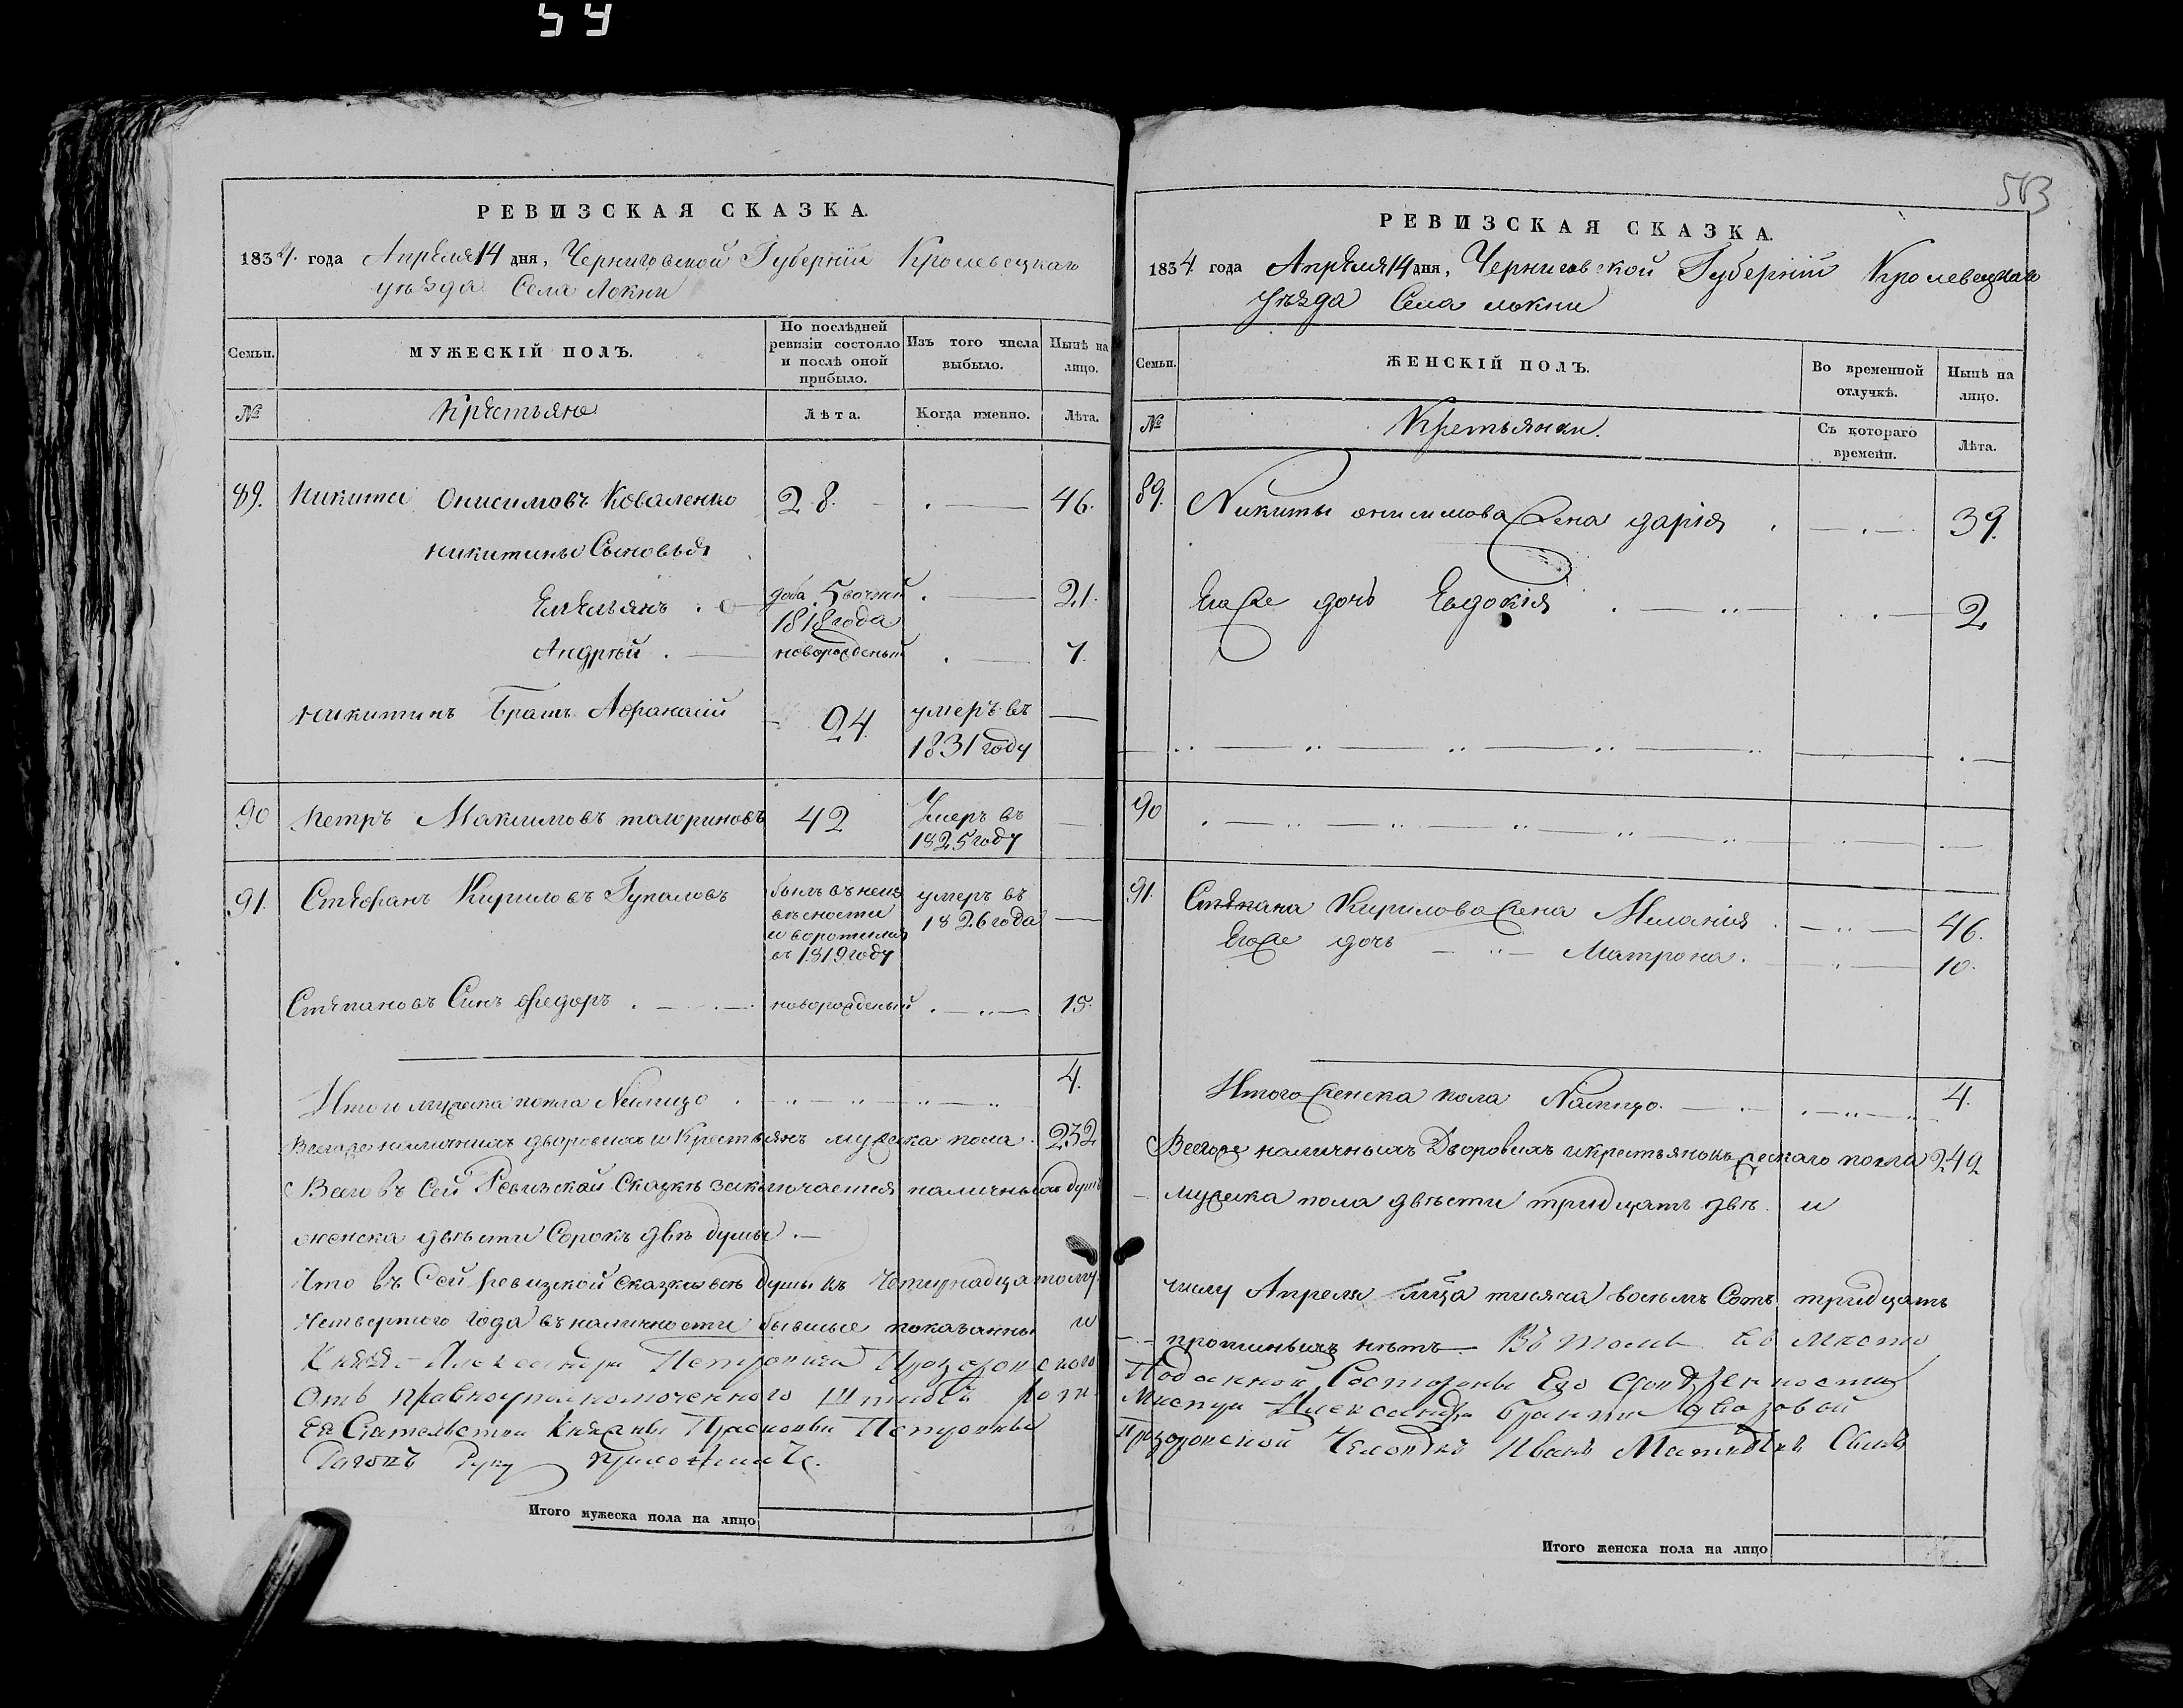 59
РЕВИЗСКАЯ СКАЗКА.
1834. года Апреля 14 дня, Черниговской Губернии Кролевецкаго
уѣзда Села Локни
Семьи.
МУЖЕСКІЙ ПОЛЪ.
По послѣдней
ревизіи состояло
и послѣ оной
прибыло.
Изъ того числа
выбыло.
Нынѣ на
лицо.
№
Крестьяне
Лѣта.
Когда именно.
Лѣта.
89. Никита Онисимовъ Коваленко 28. 46.
Никитины Сыновья
Емельянъ 21.
1818 года
Андрей новорожденый
Никитинъ Братъ Афанасій 24. умеръ въ
1831 году
90 Петръ Максимовъ 42 Умеръ въ
1825 году
91. Стефанъ Кириловъ Гупаловъ былъ въ неиз
вѣсности
и воротился
въ 1819 году
умеръ въ
1826 года
Степановъ Синъ Федоръ новорожденый 15.
Итого мужеска попла Налицо 4.
Всегоже наличныхъ дворовихъ и Крестьянъ мужеска пола 232
Всего въ Сей Ревизской Сказкѣ заключается наличныхъ душъ
женска двѣсти Сорокъ двѣ душы
Что въ Сей ревизской сказке всѣ душы къ Четирнадцатому
Четвертого года въ наличности бывшые показанны и
Князя Александра Петровича Прозоровского
Отъ
Ея Сіятельства Княжны Прасковьи Петровны
Руку Приложилъ.
Итого мужеска пола на лицо
583
РЕВИЗСКАЯ СКАЗКА.
1834. года Апреля 14 дня, Черниговской Губерніи Кролевецкаго
уѣзда Села Локни
Семьи.
ЖЕНСКІЙ ПОЛЪ.
Во временной
отлучкѣ.
Нынѣ на
лицо.
№
Крестьянки.
Съ котораго
времени.
Лѣта.
89. Никиты Онисимова жена Дарія 39.
Егоже дочь Евдокія 2
90
91. Степана Кирилова жена Меланія 46.
Егоже дочь Матрона 10.
Итого женска пола Налицо. 4.
Всегоже наличныхъ Дворовихъ и крестьянокъ женского попла 242
мужеска пола двѣсти тридцать двѣ и
числу Апреля мца тисяча восемъ Сотъ тридцать
прописныхъ нѣтъ Въ томъ въ Место
Александра
Прозоровской Человекъ Иванъ Матвѣевъ Сынъ
Итого женска пола на лицо